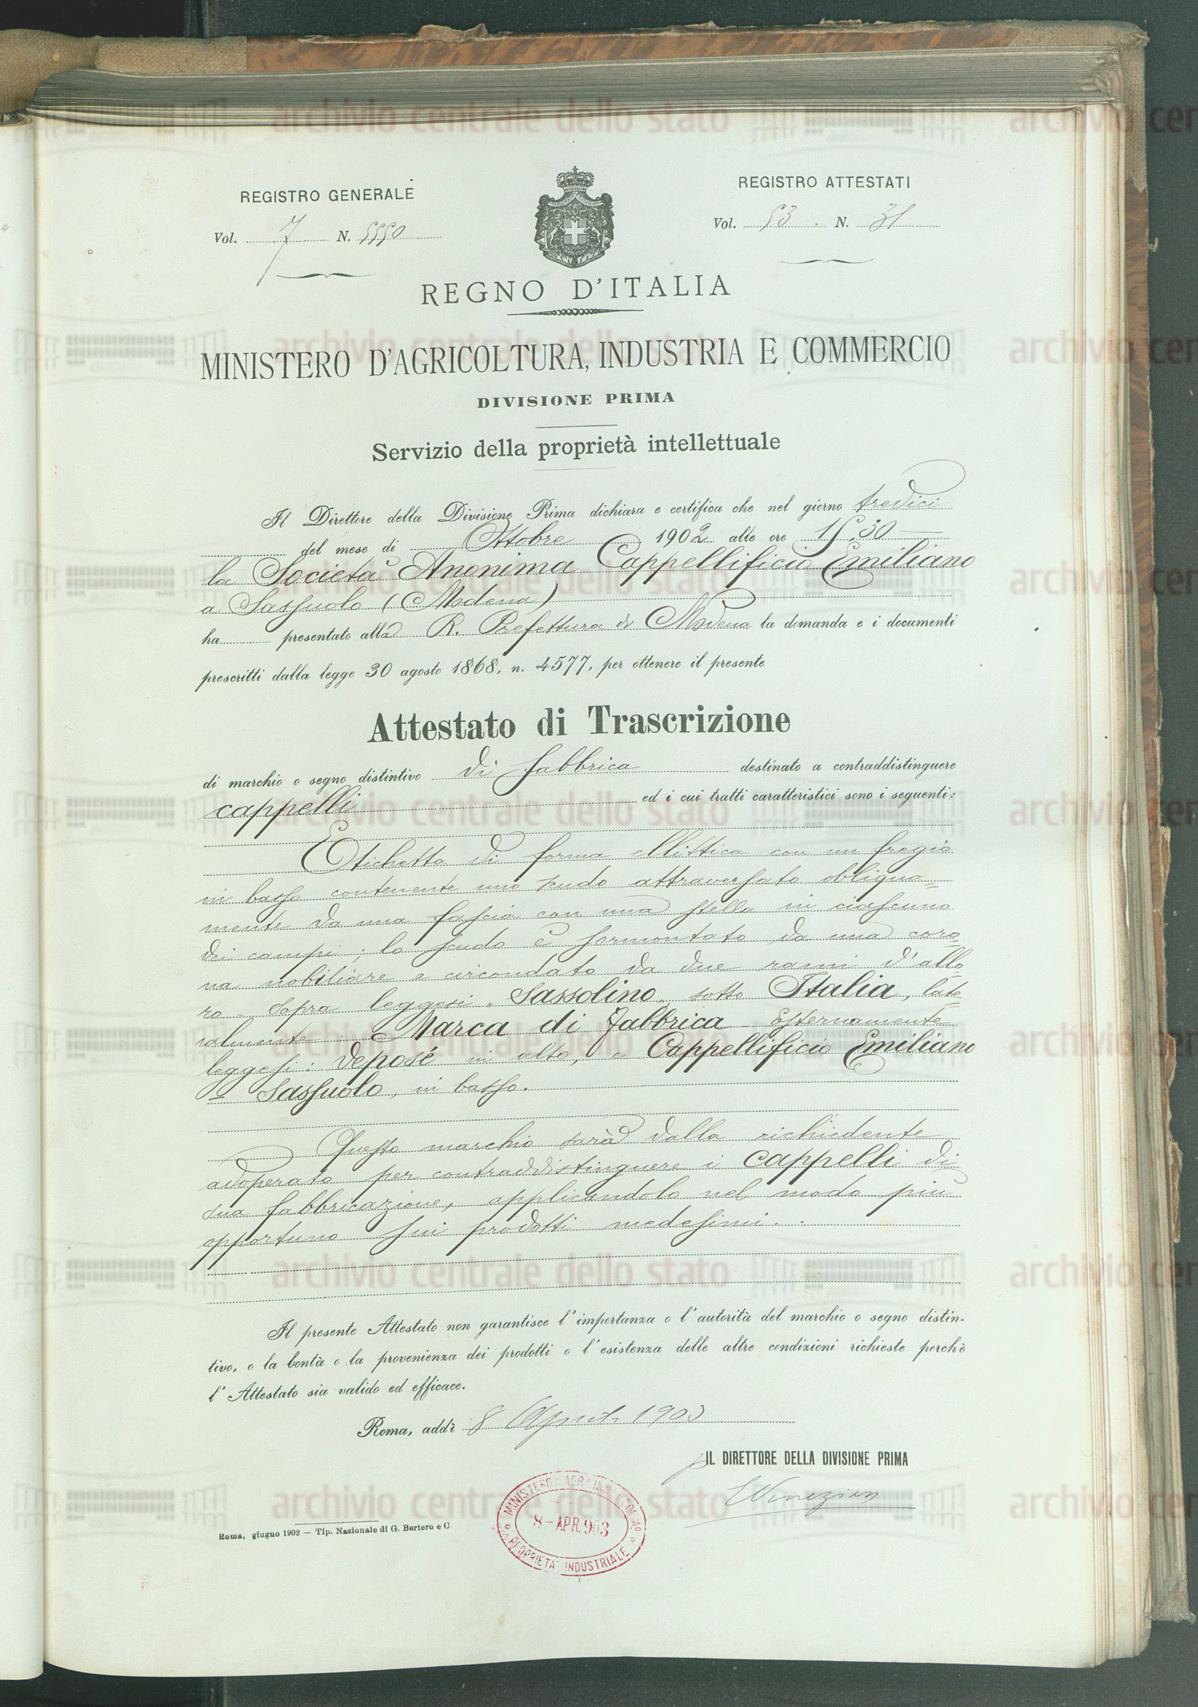 REGISTRO GENERALE
Vol. 7 N. 5550
REGISTRO ATTESTATI
Vol. 53. N. 31
REGNO D'ITALIA
MINISTERO D'AGRICOLTURA, INDUSTRIA E COMMERCIO
DIVISIONE PRIMA
Servizio della proprietà intellettuale
Il Direttore della Divisione Prima dichiara e certifica che nel giorno tredici
del mese di Ottobre 1902 alle ore 15,30
la Società Anonima Cappellificio Emiliano
a Sassuolo (Modena)
ha presentato alla R. Prefettura di Modena la domanda e i documenti
prescritti dalla legge 30 agosto 1868, n. 4577, per ottenere il presente
Attestato di Trascrizione
di marchio o segno distintivo di fabbrica destinato a contraddistinguere
cappelli ed i cui tratti caratteristici sono i seguenti:
Etichetta di forma ellittica con un fregio
in basso contenente uno scudo attraversato obliqua-
mente da una fascia con una stella in ciascuno
dei campi; lo scudo è sormontato da una coro-
na nobiliare e circondato da due rami d'allo-
ro. Sopra leggesi "Sassolino" sotto Italia, late-
ralmente Marca di Fabbrica Esternamente
leggesi: Deposé in alto, e Cappellificio Emiliano
Sassuolo, in basso.
Questo marchio sarà dalla richiedente
adoperato per contraddistinguere i cappelli di
sua fabbricazione, applicandolo nel modo più
opportuno sui prodotti medesimi.
Il presente Attestato non garantisce l'importanza o l'autorità del marchio o segno distin-
tivo, o la bontà o la provenienza dei prodotti o l'esistenza delle altre condizioni richieste perchè
l'Attestato sia valido ed efficace.
Roma, addì 8 April. 1903
IL DIRETTORE DELLA DIVISIONE PRIMA
Venezian
MINISTERO AGR. IND. E COM.
8 - APR. 903
PROPRIETÀ INDUSTRIALE
Roma, giugno 1902 — Tip. Nazionale di G. Bertero e C.
archivio centrale dello stato